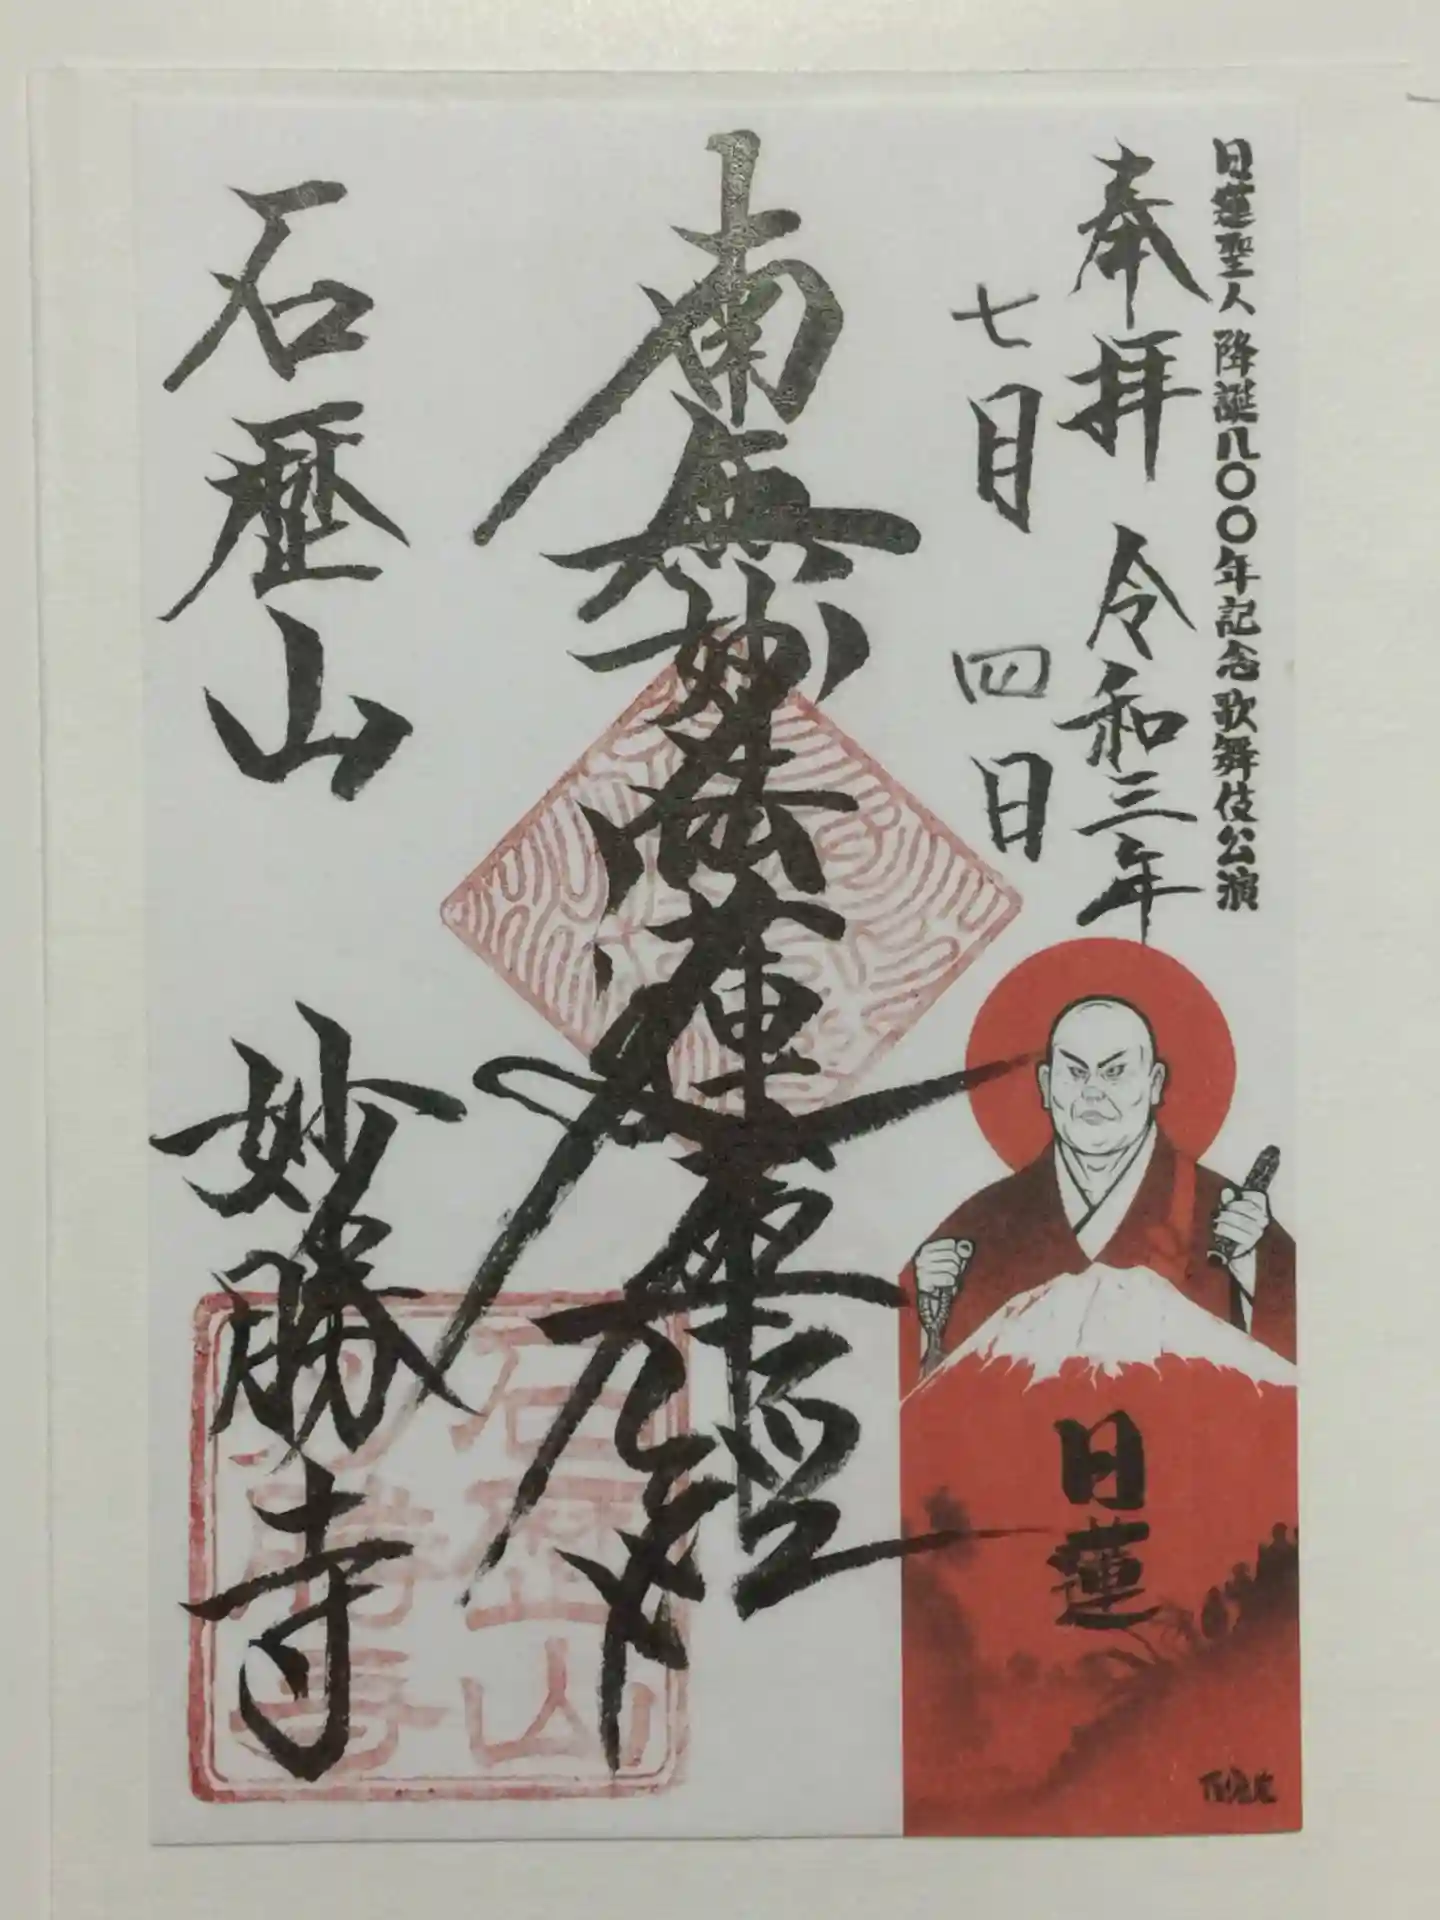 日蓮聖人 降誕八〇〇年記念歌舞伎公演
奉拝 令和三年
七月 四日
南無妙法蓮華経
石歴山 妙勝寺
日蓮
石歴山
妙勝寺